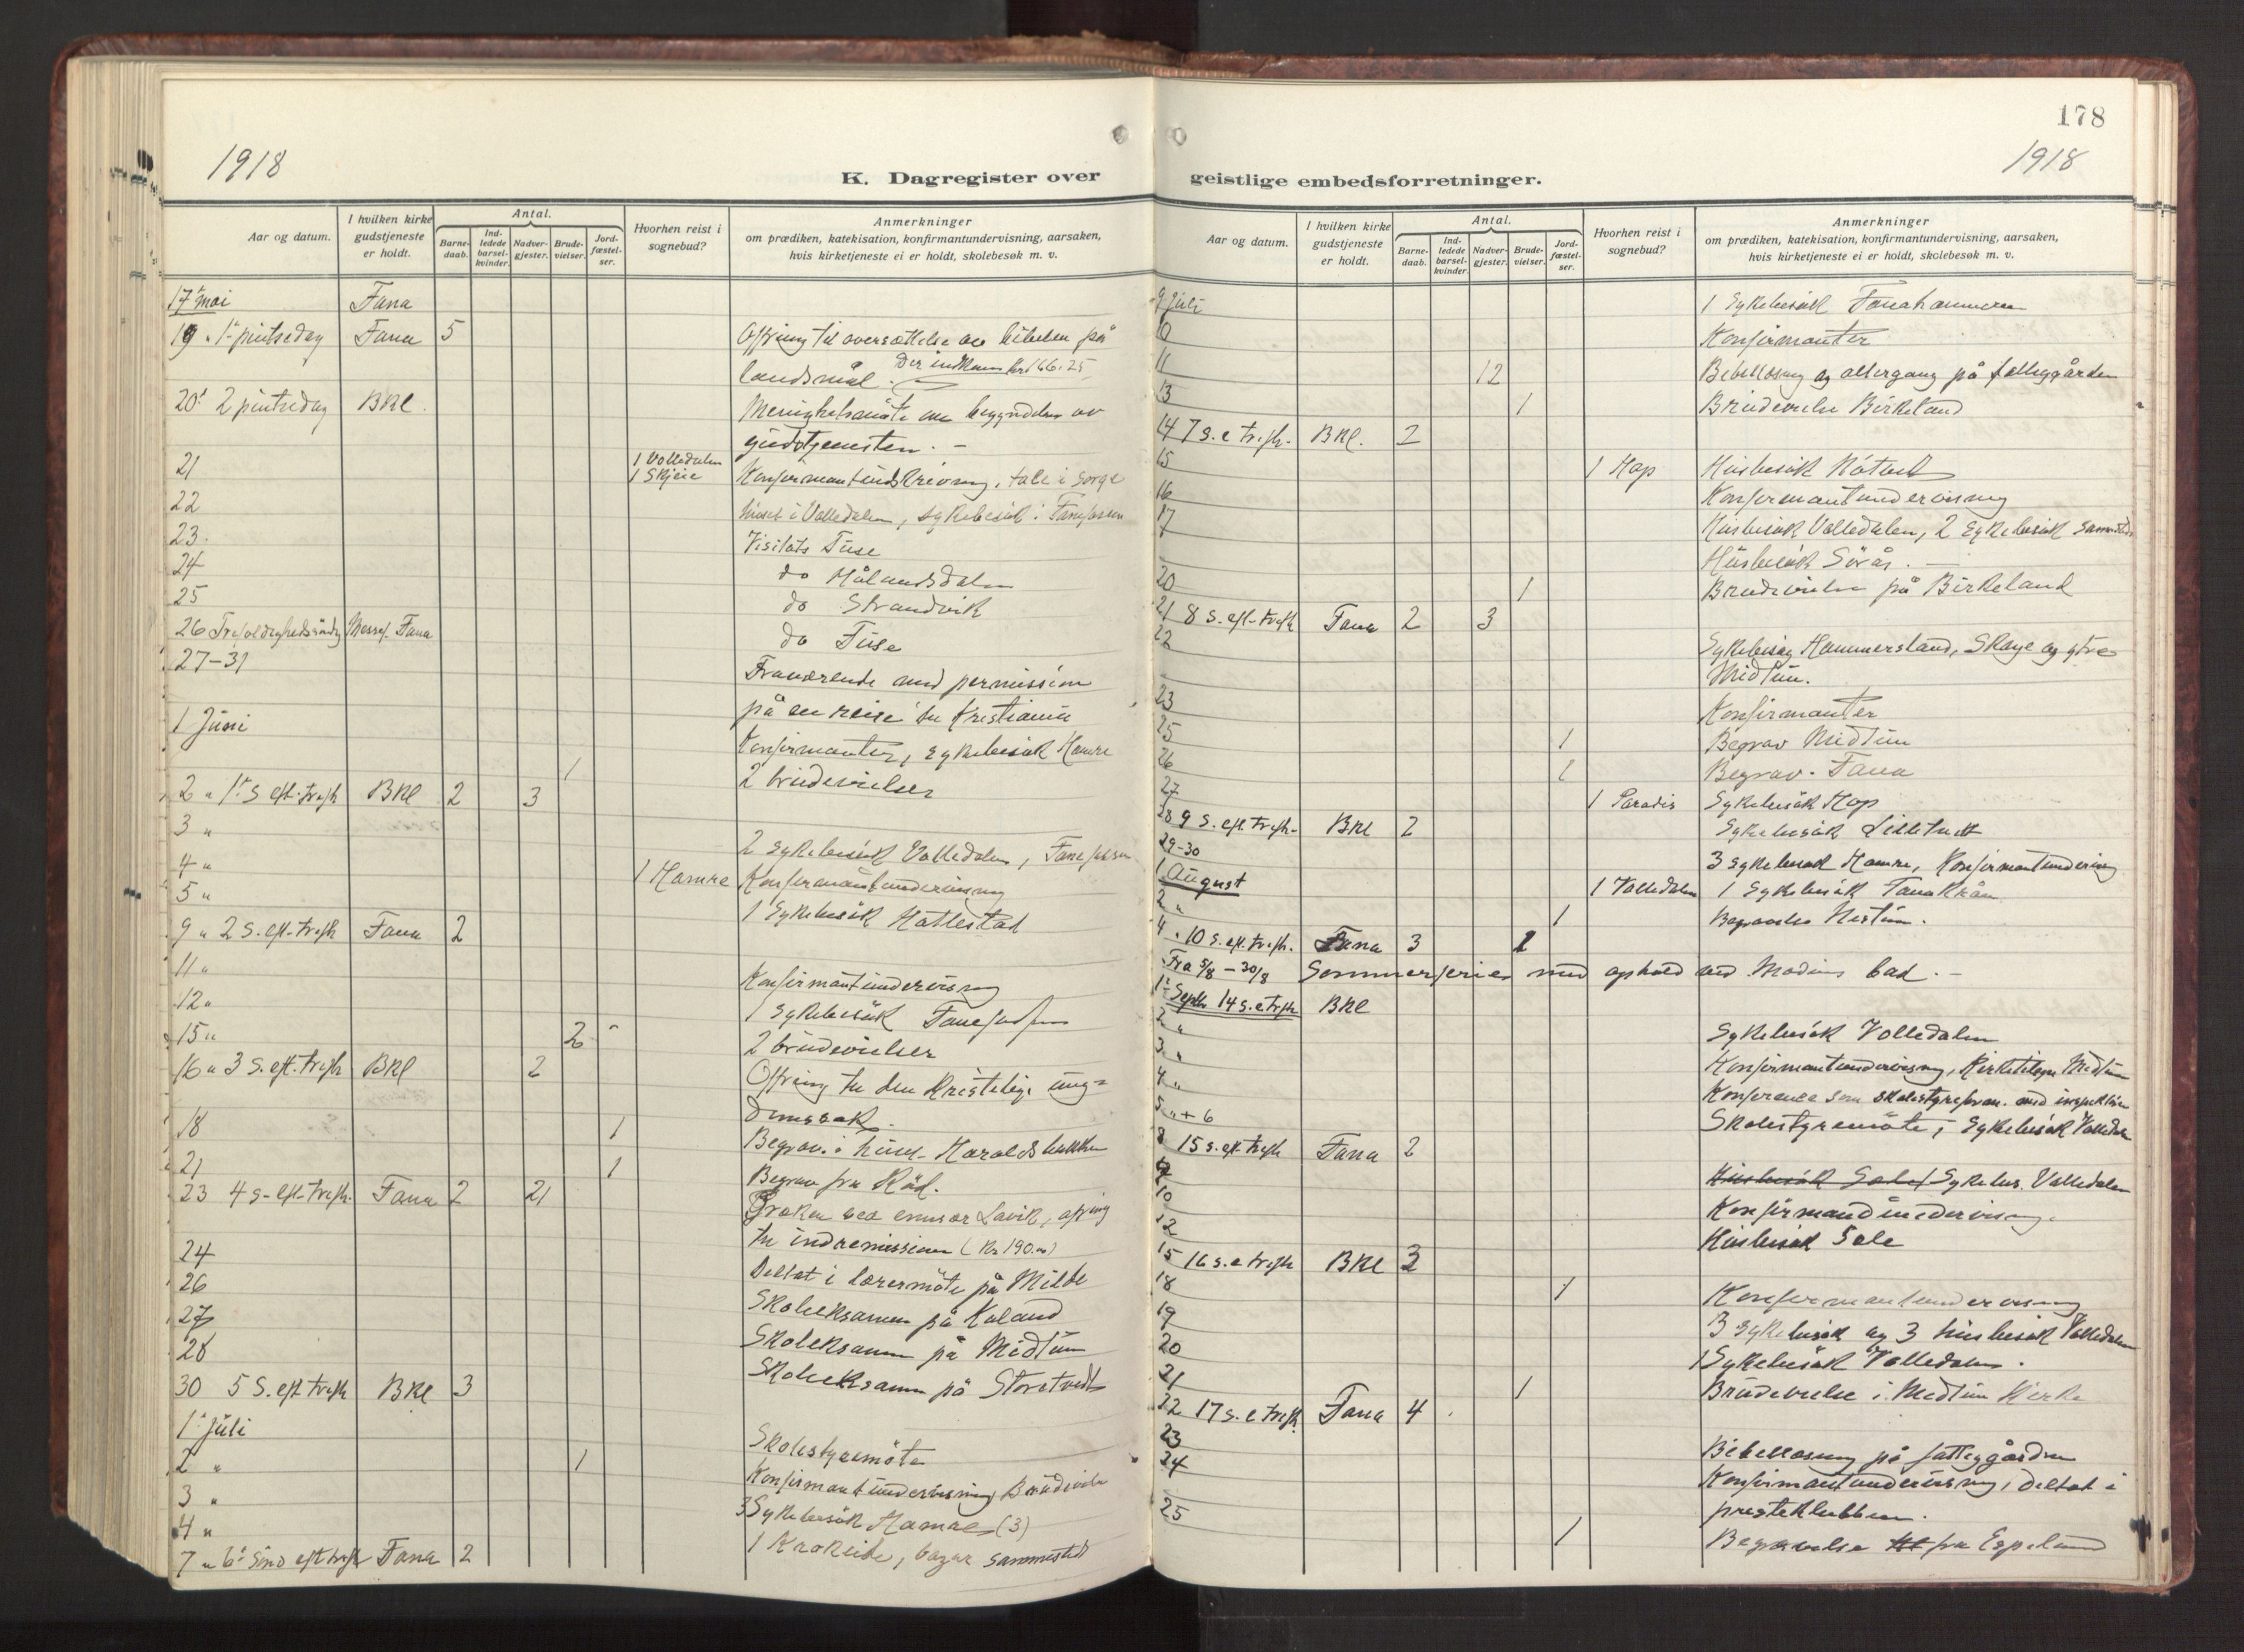 178
1918
1918
K. Dagregister over geistlige embedsforretninger.
Aar og datum.
I hvilken kirke gudstjeneste er holdt.
Antal.
Barnedaab.
Indledede barselkvinder.
Nadvergjester.
Brudevielser.
Jordfæstelser.
Hvorhen reist i sognebud?
Anmerkninger
om prædiken, katekisation, konfirmantundervisning, aarsaken,
hvis kirketjeneste ei er holdt, skolebesøk m. v.
17 mai Fana
19 " 1 pintsedag Fana 5 Offring til oversættelse av bibelen på
landsmål. Der indkom kr 166.25
20 2 pintsedag BKl. Menighetsmöte om begyndelsen av
gudstjenesten. -
21 1 Volledalen
1 Skjeie Konfirmantindskrivning, tale i sorge
22 huset i Volledalen, sykebesök i Fanefossen
23. Visitats Fuse
24 do Hålandsdalen
25 do Strandvik
26 Trefoldighedssöndag Messef. Fana do Fuse
27-31 Fraværende med permission
på en reise til Kristiania
1 Juni Konfirmanter, sykebesök Hamre
1 2 brudevielser
2 " 1 S eft. trefh BKl 2 3
3 " 2 sykebesök Volledalen,
4 " 1 Hamre Konfirmantundervisning
5 " 1 Sykebesök Hattestad
9 " 2 S. eft. trefh Fana 2
11 " Konfirmantundervisning
12 " 1 Sykebesök
15 " 2 2 brudevielser
16 " 3 S. eft. trefh BKl 2 Offring til den kristelige ung=
domssak.
18 1 Begrav. i huset Haraldsbakken
21 1 Begrav fra Råd.
23 4 S. eft. trefh. Fana 2 21 ved emissær Lavik, offring
til indremissionen (Kr 190.00)
24 Deltat i lærermöte på Milde
26 Skoleeksamen på Kaland
27 Skoleksamen på Midtun
28 Skoleeksamen på Storetvedt
30 5 S. eft trefh BKl 3
1 Juli Skolestyremöte
2 " 1 Konfirmantundervisning, Brudevielse
3 " 3 Sykebesök Hamre (3)
4 " 1 Krokeide, bazar sammesteds
7 " 6 Sönd eft trefh Fana 2
Aar og datum.
I hvilken kirke gudstjeneste er holdt.
Antal.
Barnedaab.
Indledede barselkvinder.
Nadvergjester.
Brudevielser.
Jordfæstelser.
Hvorhen reist i sognebud?
Anmerkninger
om prædiken, katekisation, konfirmantundervisning, aarsaken,
hvis kirketjeneste ei er holdt, skolebesøk m. v.
9 Juli 1 Sykebesök Fanahammeren
10 Konfirmanter
11 12 Bibellæsning og altergang på fattiggården
13 1 Brudevielse Birkeland
14 7 S. e trefh. BKl. 2
15 1 Hop Husbesök Nátvet
16 Konfirmantundervisning
17 Husbesök Volledalen, 2 Sykebesök sammesteds
Husbesök Sörås. -
20 1 Brudevielse på Birkeland
21 8 S. eft. trefh Fana 2 3
22 Sykebesög Hammersland, Skage og ytre
Midtun.
23 Konfirmanter
25 1 Begrav Midtun
26 1 Begrav. Fana
27 1 Paradis Sykebesök Hop
28 9 S. eft. trefh. BKl 2 Sykebesök Lilletvedt
29-30 3 Sykebesök Hamre, Konfirmantundervisning
1 August 1 Volledalen 1 Sykebesök
2 " 1 Begravelse Nestun.
4 " 10 S. eft. trefh. Fana 3 1
Fra 5/8 - 30/8 Sommerferie med ophold ved Modums bad. -
1 Septbr 14 S. e trefh BKl
2 " Sykebesök Volledalen
3 " Konfirmantundervisning, Midtun
4 " Konferance som skolestyreform. med inspektören
5 " + 6 Skolestyremöte, Sykebesök Volledalen
8 15 S. eft trefh Fana 2
9 Husbesök Sale Sykebes. Volledalen
10 Konfirmandundervisning.
12 Husbesök Sale
15 16 S. e trefh BKl 3
18 1 Konfirmantundervisning
19 3 sykebesök og 3 husbesök Volledalen
20 1 Sykebesök Volledalen.
21 1 Brudevielse i Midtun Kirke
22 17 S. e trefh. Fana 4
23 Bibellæsning på fattiggården
24 Konfirmantundervisning, deltat i
presteklubben.
25 1 Begravelse fra Espeland